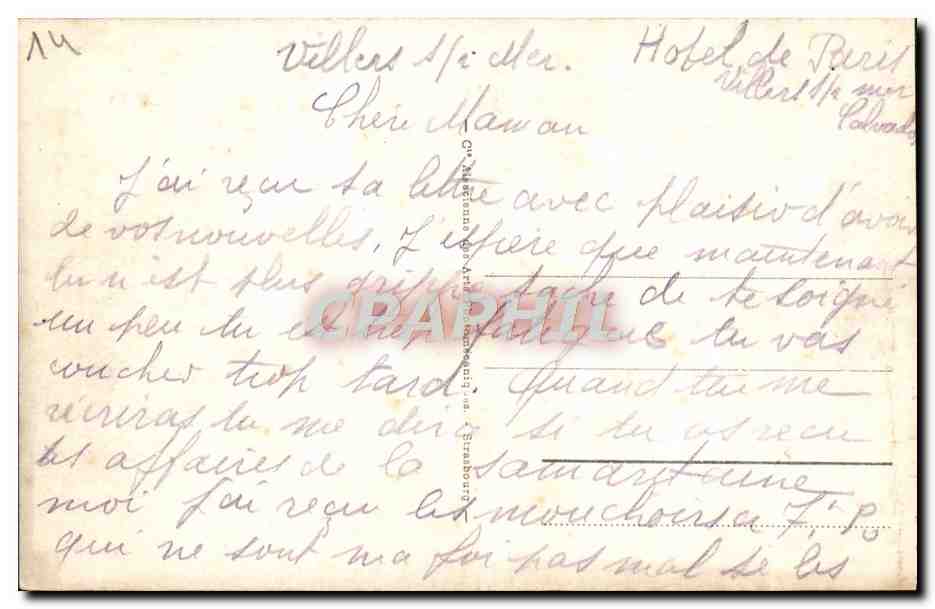 14
Villers s/r Mer. Hotel de Paris
Villers s/r mer
Calvados
Chère Maman
J'ai reçu ta lettre avec plaisir d'avoir
de vos nouvelles. J'espère que maintenant
tu n'est plus grippé tache de te soigné
un peu tu es trop fatigué tu vas
coucher trop tard. Quand tu me
récriras tu me dira si tu as recu
les affaires de la samaritaine
moi J'ai reçu les mouchoirs a 7,
qui ne sont ma foi pas mal si les
Cie Alsacienne des Arts Photomécaniques. - Strasbourg
CRAPHIL